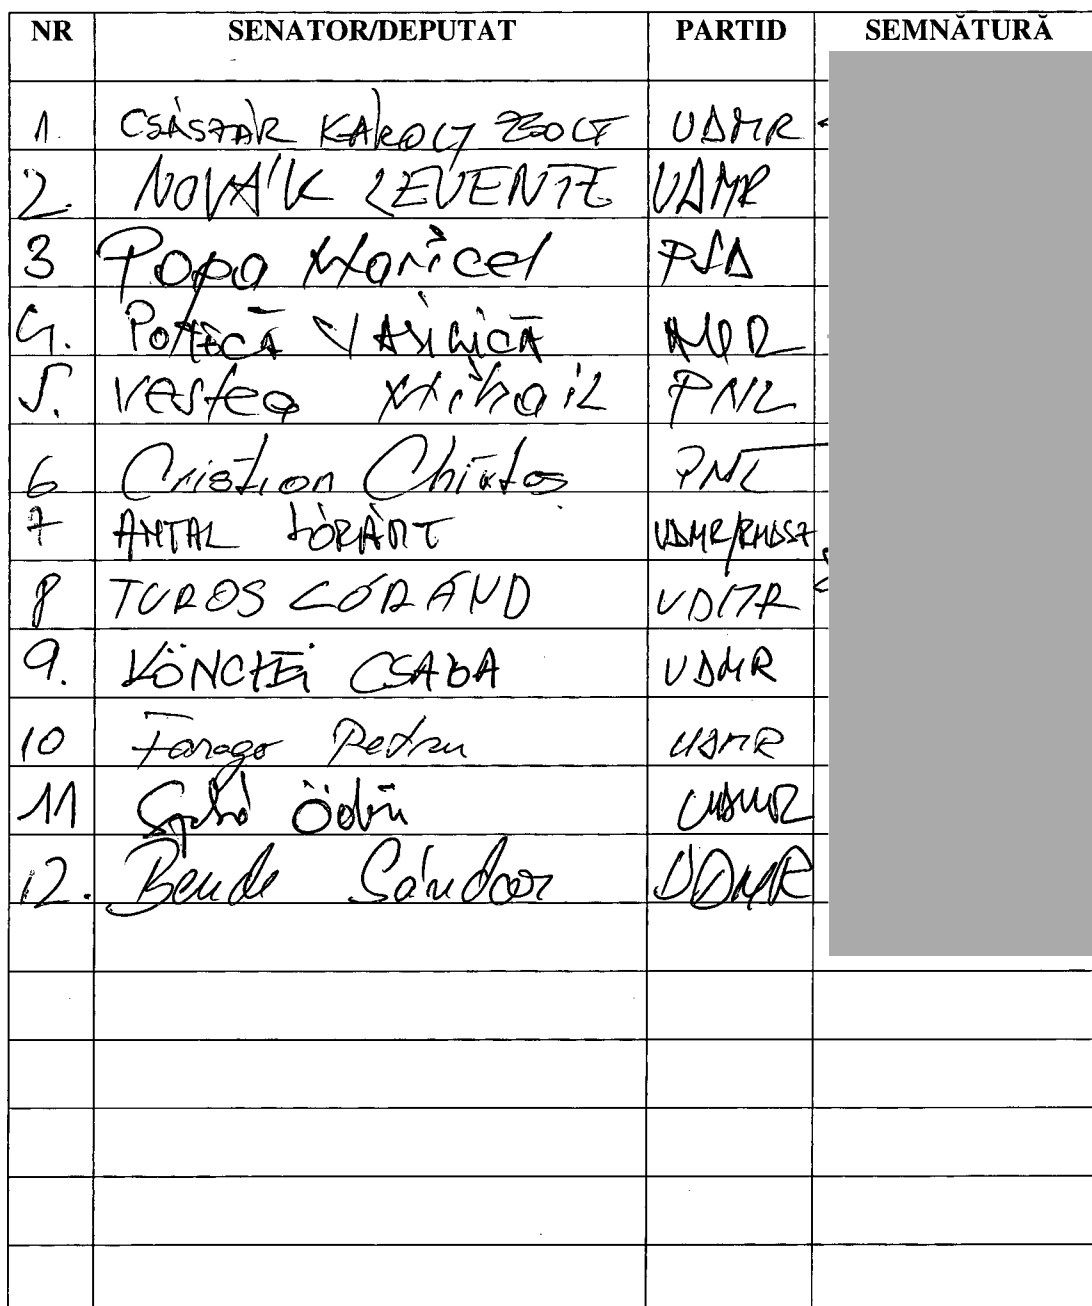 NR SENATOR/DEPUTAT PARTID SEMNĂTURĂ
1. CSÁSZÁR KÁROLY ZSOLT UDMR
2. NOVÁK LEVENTE UDMR
3 Popa Maricel PSD
4. Vasilică
5. Vestea Mihail PNL
6 Cristian Chirteș PNL
7 ANTAL LÓRÁNT UDMR/RMDSZ
8 TUROS LÓRÁND UDMR
9. KÖNCZEI CSABA UDMR
10 Farago Petru UDMR
11 Szabó Ödön UDMR
12. Bende Sándor UDMR